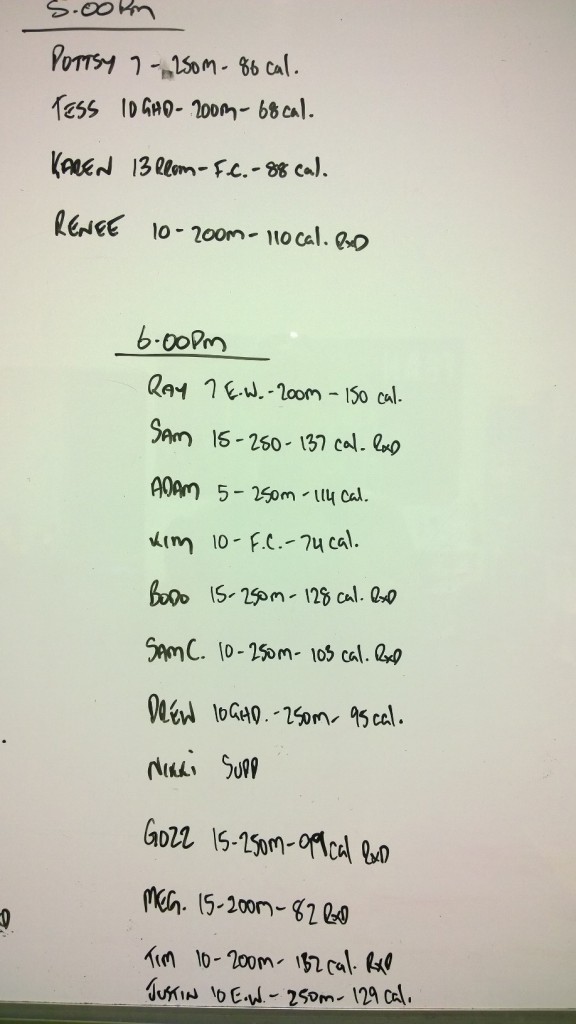 5.00pm
POTTSY 7 - 250m - 86 cal.
TESS 10 GHD - 200m - 68 cal.
KAREN 13 - F.C. - 88 cal.
RENEE 10 - 200m - 110 cal. RxD
6.00pm
RAY 7 E.W. - 200m - 150 cal.
SAM 15 - 250 - 137 cal. RxD
ADAM 5 - 250m - 114 cal.
KIM 10 - F.C. - 74 cal.
BODO 15 - 250m - 128 cal. RxD
SAM C. 10 - 250m - 103 cal. RxD
DREW 10 GHD. - 250m - 95 cal.
NIKKI SUPP
GOZZ 15 - 250m - cal RxD
MEG. 15 - 200m - 82 RxD
TIM 10 - 200m - 132 cal. RxD
JUSTIN 10 E.W. - 250m - 129 cal.